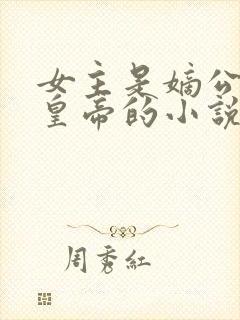 女主是嫡公
皇帝的小說
周秀紅